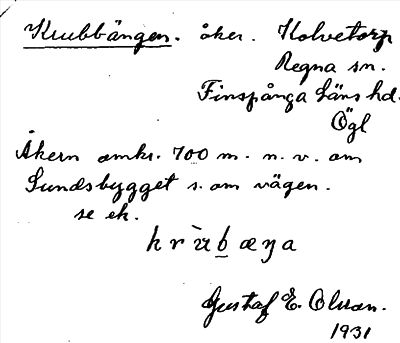 Krubbängen. åker. Kolvetorp
Regna sn.
Finspånga läns hd.
Ögl
Åkern omkr. 700 m. n. v. om
Sundsbygget s. om vägen.
se ek.
krùbæŋa
Gustaf E. Olsson.
1931